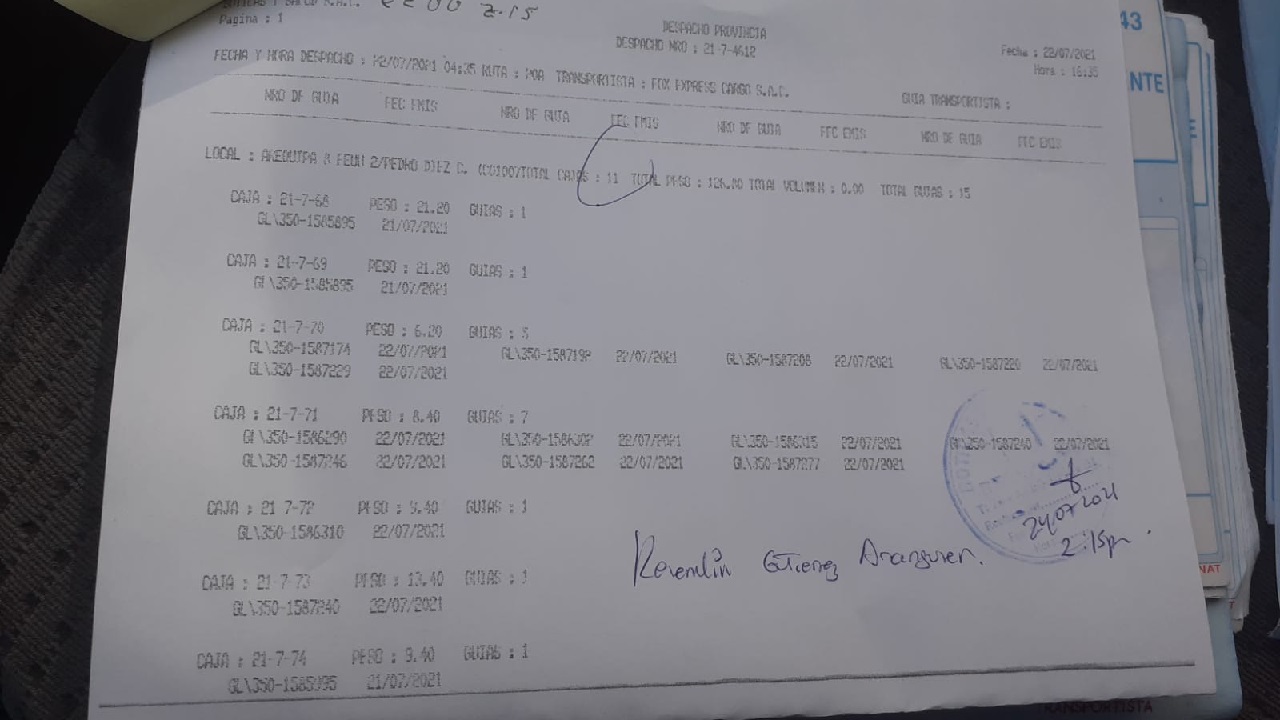 Pagina : 1
2.15
DESPACHO PROVINCIA
DESPACHO NRO : 21-7-4612
Fecha : 22/07/2021
Hora : 16:35
FECHA Y HORA DESPACHO : 22/07/2021 04:35 RUTA : POA TRANSPORTISTA : FOX EXPRESS CARGO S.A.C.
GUIA TRANSPORTISTA :
NRO DE GUIA FEC EMIS NRO DE GUIA FEC EMIS NRO DE GUIA FEC EMIS NRO DE GUIA FEC EMIS
LOCAL : AREQUIPA 2/PEDRO DIEZ C. CAJAS : 11 TOTAL PESO : TOTAL VOLUMEN : 0.00 TOTAL GUIAS : 15
CAJA : 21-7-68 PESO : 21.20 GUIAS : 1
GL\350-1585895 21/07/2021
CAJA : 21-7-69 PESO : 21.20 GUIAS : 1
GL\350-1585895 21/07/2021
CAJA : 21-7-70 PESO : 6.20 GUIAS : 5
GL\350-1587174 22/07/2021 GL\350-1587192 22/07/2021 GL\350-1587208 22/07/2021 GL\350-1587220 22/07/2021
GL\350-1587229 22/07/2021
CAJA : 21-7-71 PESO : 8.40 GUIAS : 7
GL\350-1586290 22/07/2021 GL\350-1586302 22/07/2021 GL\350-1586315 22/07/2021 GL\350-1587240 22/07/2021
GL\350-1587246 22/07/2021 GL\350-1587262 22/07/2021 GL\350-1587277 22/07/2021
CAJA : 21-7-72 PESO : 9.40 GUIAS : 1
GL\350-1586310 22/07/2021
CAJA : 21-7-73 PESO : 13.40 GUIAS : 1
GL\350-1587240 22/07/2021
CAJA : 21-7-74 PESO : 9.40 GUIAS : 1
GL\350-1585995 21/07/2021
24/07/2021
2:15p
43
NTE
NAT
TRANSPORTISTA